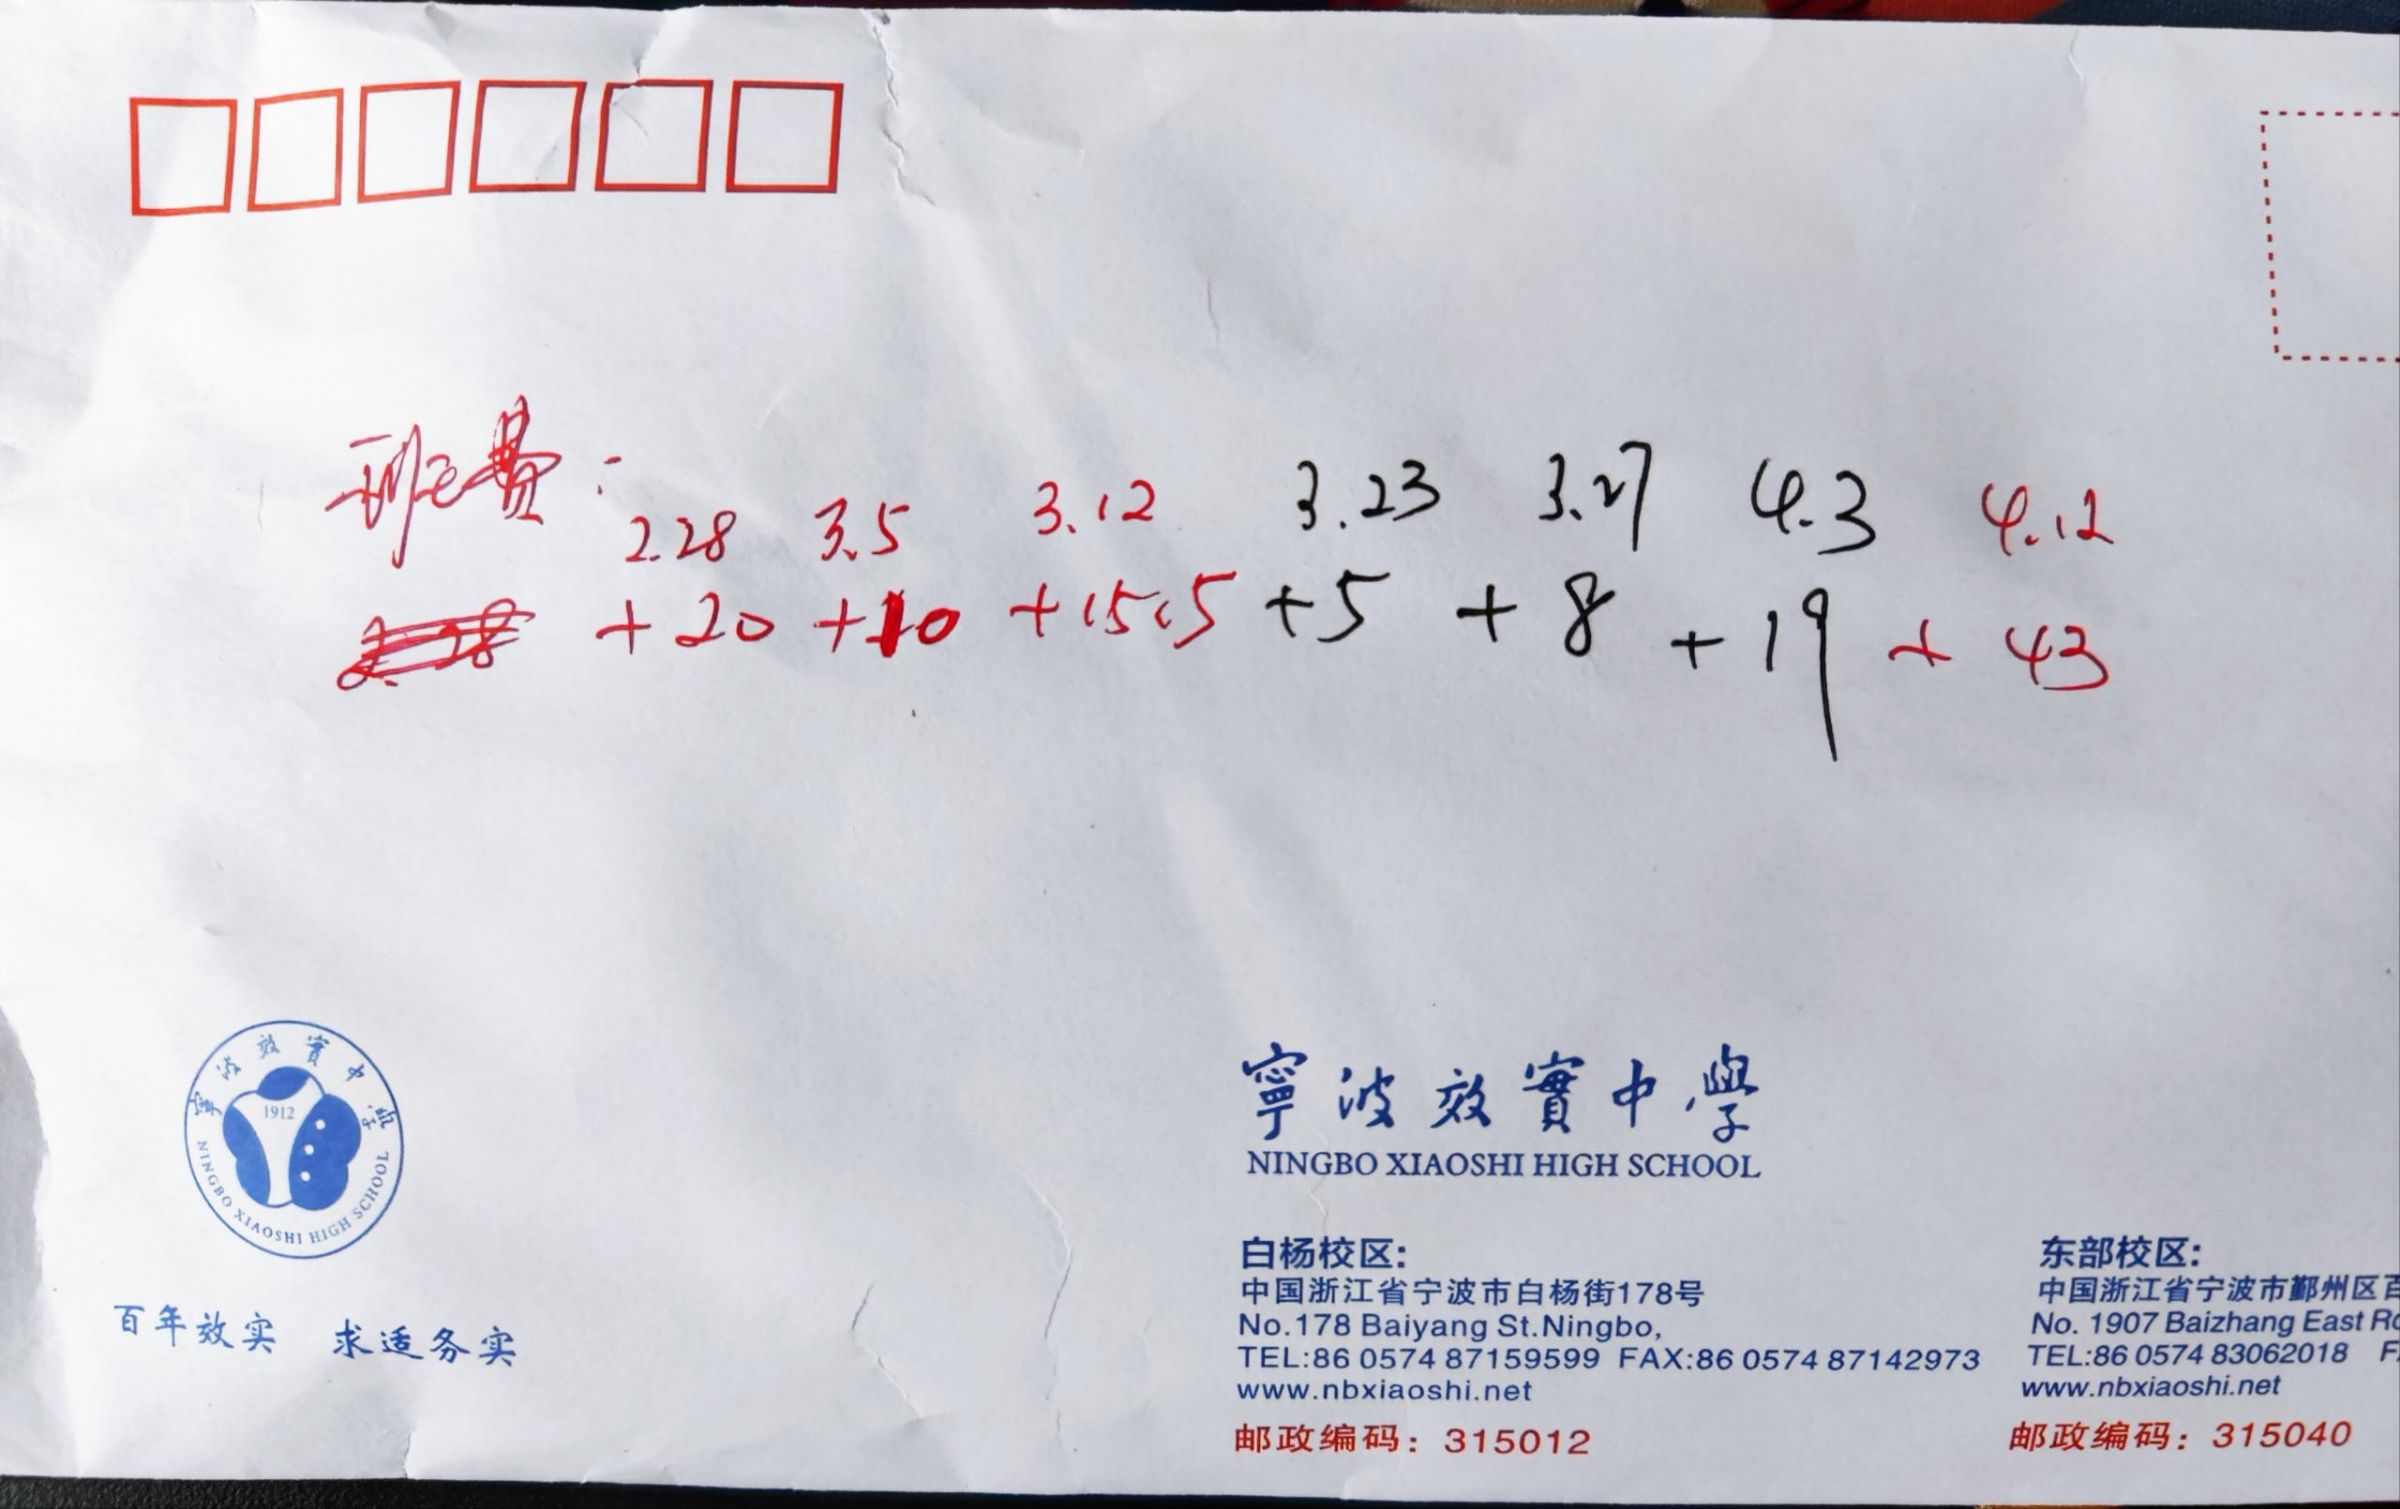 班费:
2.28 3.5 3.12 3.23 3.27 4.3 4.12
+20 +10 +15.5 +5 +8 +19 +43
寧波效實中學
1912
NINGBO XIAOSHI HIGH SCHOOL
百年效实 求适务实
寧波效實中學
NINGBO XIAOSHI HIGH SCHOOL
白杨校区:
中国浙江省宁波市白杨街178号
No.178 Baiyang St.Ningbo,
TEL:86 0574 87159599 FAX:86 0574 87142973
www.nbxiaoshi.net
邮政编码: 315012
东部校区:
中国浙江省宁波市鄞州区百
No. 1907 Baizhang East Ro
TEL:86 0574 83062018 F
www.nbxiaoshi.net
邮政编码: 315040